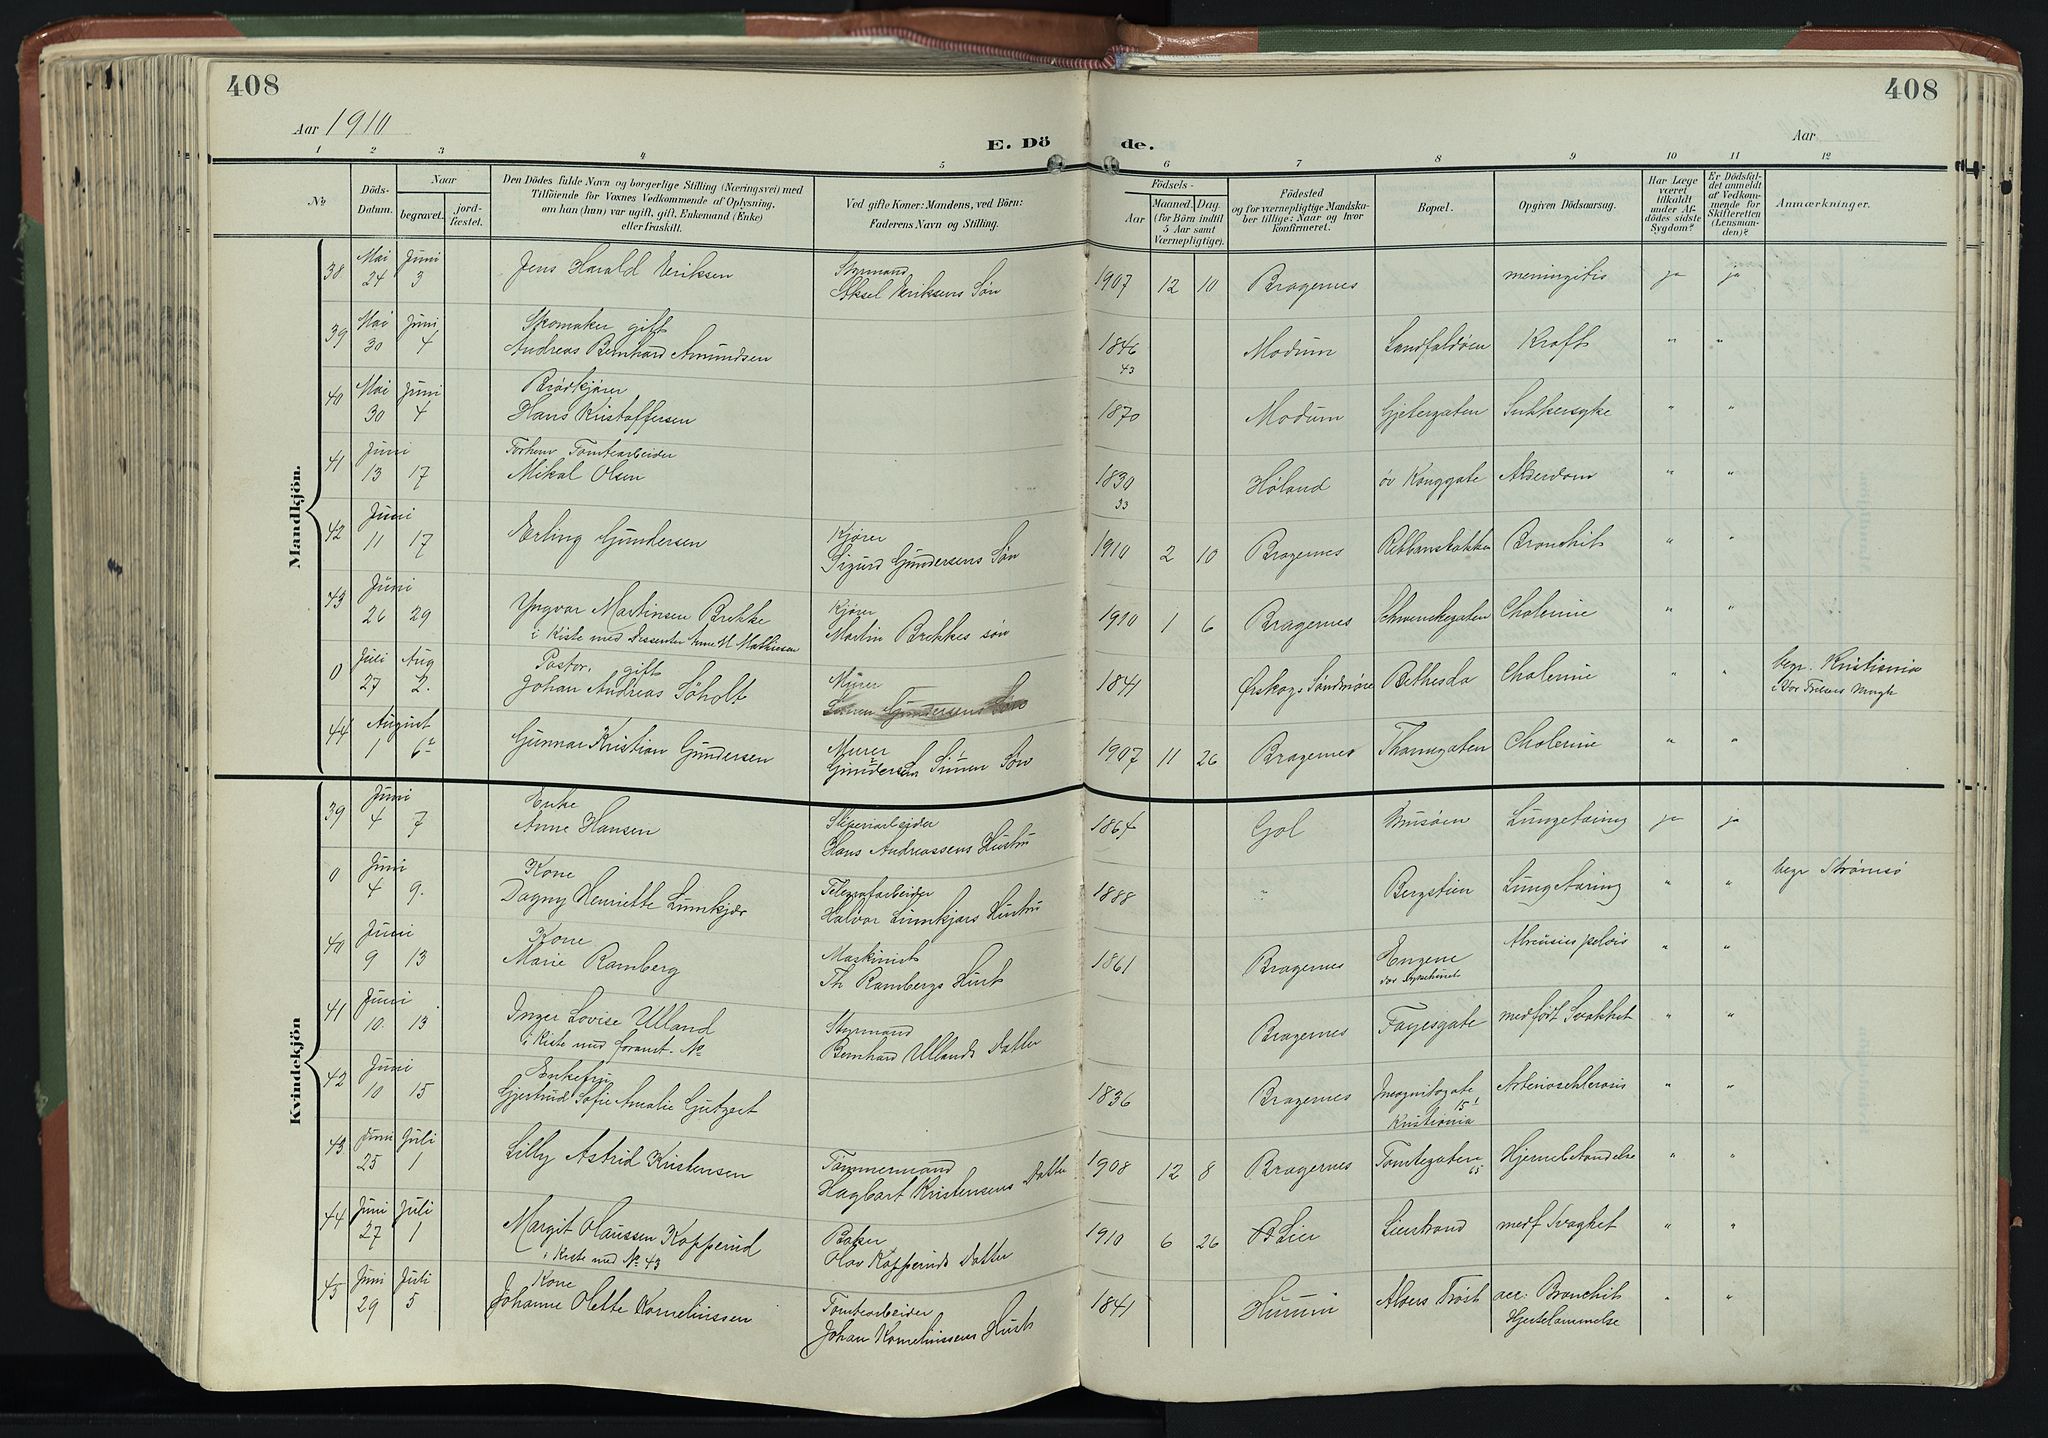 408
408
Aar 1910
Aar
E. Döde.
1 2 3 4 5 6 7 8 9 10 11 12
No
Döds-Datum.
Naar
begravet.
jordfæstet.
Den Dödes fulde Navn og borgerlige Stilling (Næringsvei) med
Tilföiende for Voxnes Vedkommende af Oplysning,
om han (hun) var ugift, gift, Enkemand (Enke)
eller fraskilt.
Ved gifte Koner: Mandens, ved Börn:
Faderens Navn og Stilling.
Födsels-
Aar
Maaned. Dag.
(for Börn indtil
5 Aar samt
Værnepligtige).
Födested
og for værnepligtige Mandskaber tillige: Naar og hvor
konfirmeret.
Bopæl.
Opgiven Dödsaarsag.
Har Læge
været
tilkaldt
under Afdödes sidste
Sygdom?
Er Dödsfaldet anmeldt
af Vedkommende for
Skifteretten
(Lensmanden)?
Anmærkninger.
Mandkjön.
38 Mai 24 Juni 3 Jens Harald Eriksen Styrmand Aksel Eriksens Søn 1907 12 10 Bragernes meningitis ja ja
39 Mai 30 Juni 4 Skomaker gift Andreas Bernhard Amundsen 1846 43 Modum Landfaldøen Kræft " "
40 Mai 30 Juni 4 Brødkjører Hans Kristoffersen 1870 Modum Gjetergaten Sukkersyke " "
41 Juni 13 17 Forhenv Tomtearbeider Mikal Olsen 1830 33 Høland øv Konggate Alderdom " "
42 Juni 11 17 Erling Gundersen Kjører Sigurd Gundersens Søn 1910 2 10 Bragernes Ribbanskakken Bronchit " "
43 Juni 26 29 Yngvar Martinsen Brekke i Kiste med Dissenter Anne M Mathiesen Kjører Martin Brekkes søn 1910 1 6 Bragernes Schwenckegaten Cholerine " "
0 Juli 27 Aug 2. Pastor, gift Johan Andreas Søholt Murer Simen Gundersens Søn 1841 Ørskog, Søndmøre Bethesda Cholerine " " begr. Kristiania Vor Frelsers
44 August 1 6 Gunnar Kristian Gundersen Murer Gundersen Simen Søn 1907 11 26 Bragernes Thornegaten Cholerine " "
Kvindekjön
39 Juni 4 7 Enke Anne Hansen Sliperiarbeider Hans Andreassens Hustru 1864 Gol Brusøen Lungetæring ja ja
0 Juni 4 9. Kone Dagny Henriette Linnkjær Telegrafarbeider Halvor Linnkjærs Hustru 1888 " Bergstien Lungetæring " " begr Strømsø
40 Juni 9 13 Kone Marie Ramberg Maskinist Th Rambergs Hust 1861 Bragernes Engene pelvis " "
41 Juni 10. 13 Inger Lovise Ulland i Kiste med foranst. No Styrmand Bernhard Ullands Datter Bragernes Fayesgate medfødt Svakhet " "
42 Juni 10 15 Enkefru Gjertrud Sofie Amalie Gutzeit 1836 Bragernes Incognitogate 15 Kristiania Arterioschlerosis " "
43 Juni 25 Juli 1 Lilly Astrid Kristensen Tømmermand Hagbart Kristensens Datter 1908 12 8 Bragernes Tomtegaten 65 Hjernebetændelse " "
44 Juni 27 Juli 1 Margit Olaussen Kopperud i Kiste med No 43 Baker Olav Kopperuds Datter 1910 6 26 Lier Lierstrand medf Svaghet " "
45 Juni 29 Juli 5 Kone Johanne Olette Korneliussen Tomtearbeider Johan Korneliussens Hust 1841 Hurum Alvers Trøst acc: Bronchit Hjertelammelse " "